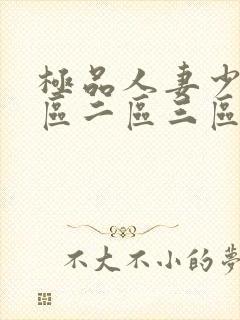 極品人妻少
區二區三區
不大不小的夢